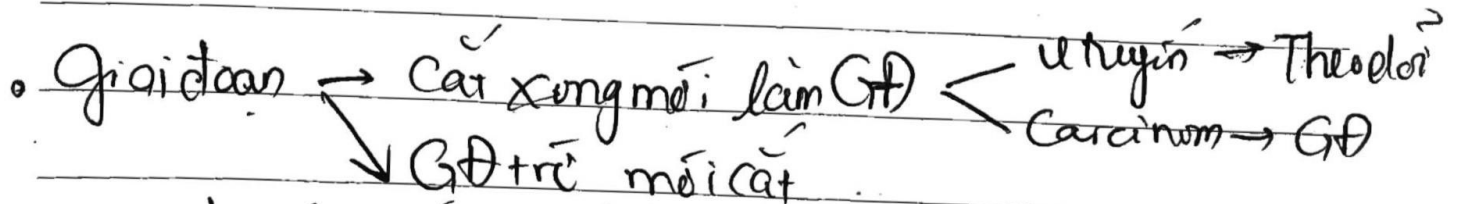 • Giai đoạn → Cắt xong mới làm GĐ < U tuyến → Theo dõi
Carcinom → GĐ
↘ GĐ + rồi mới cắt